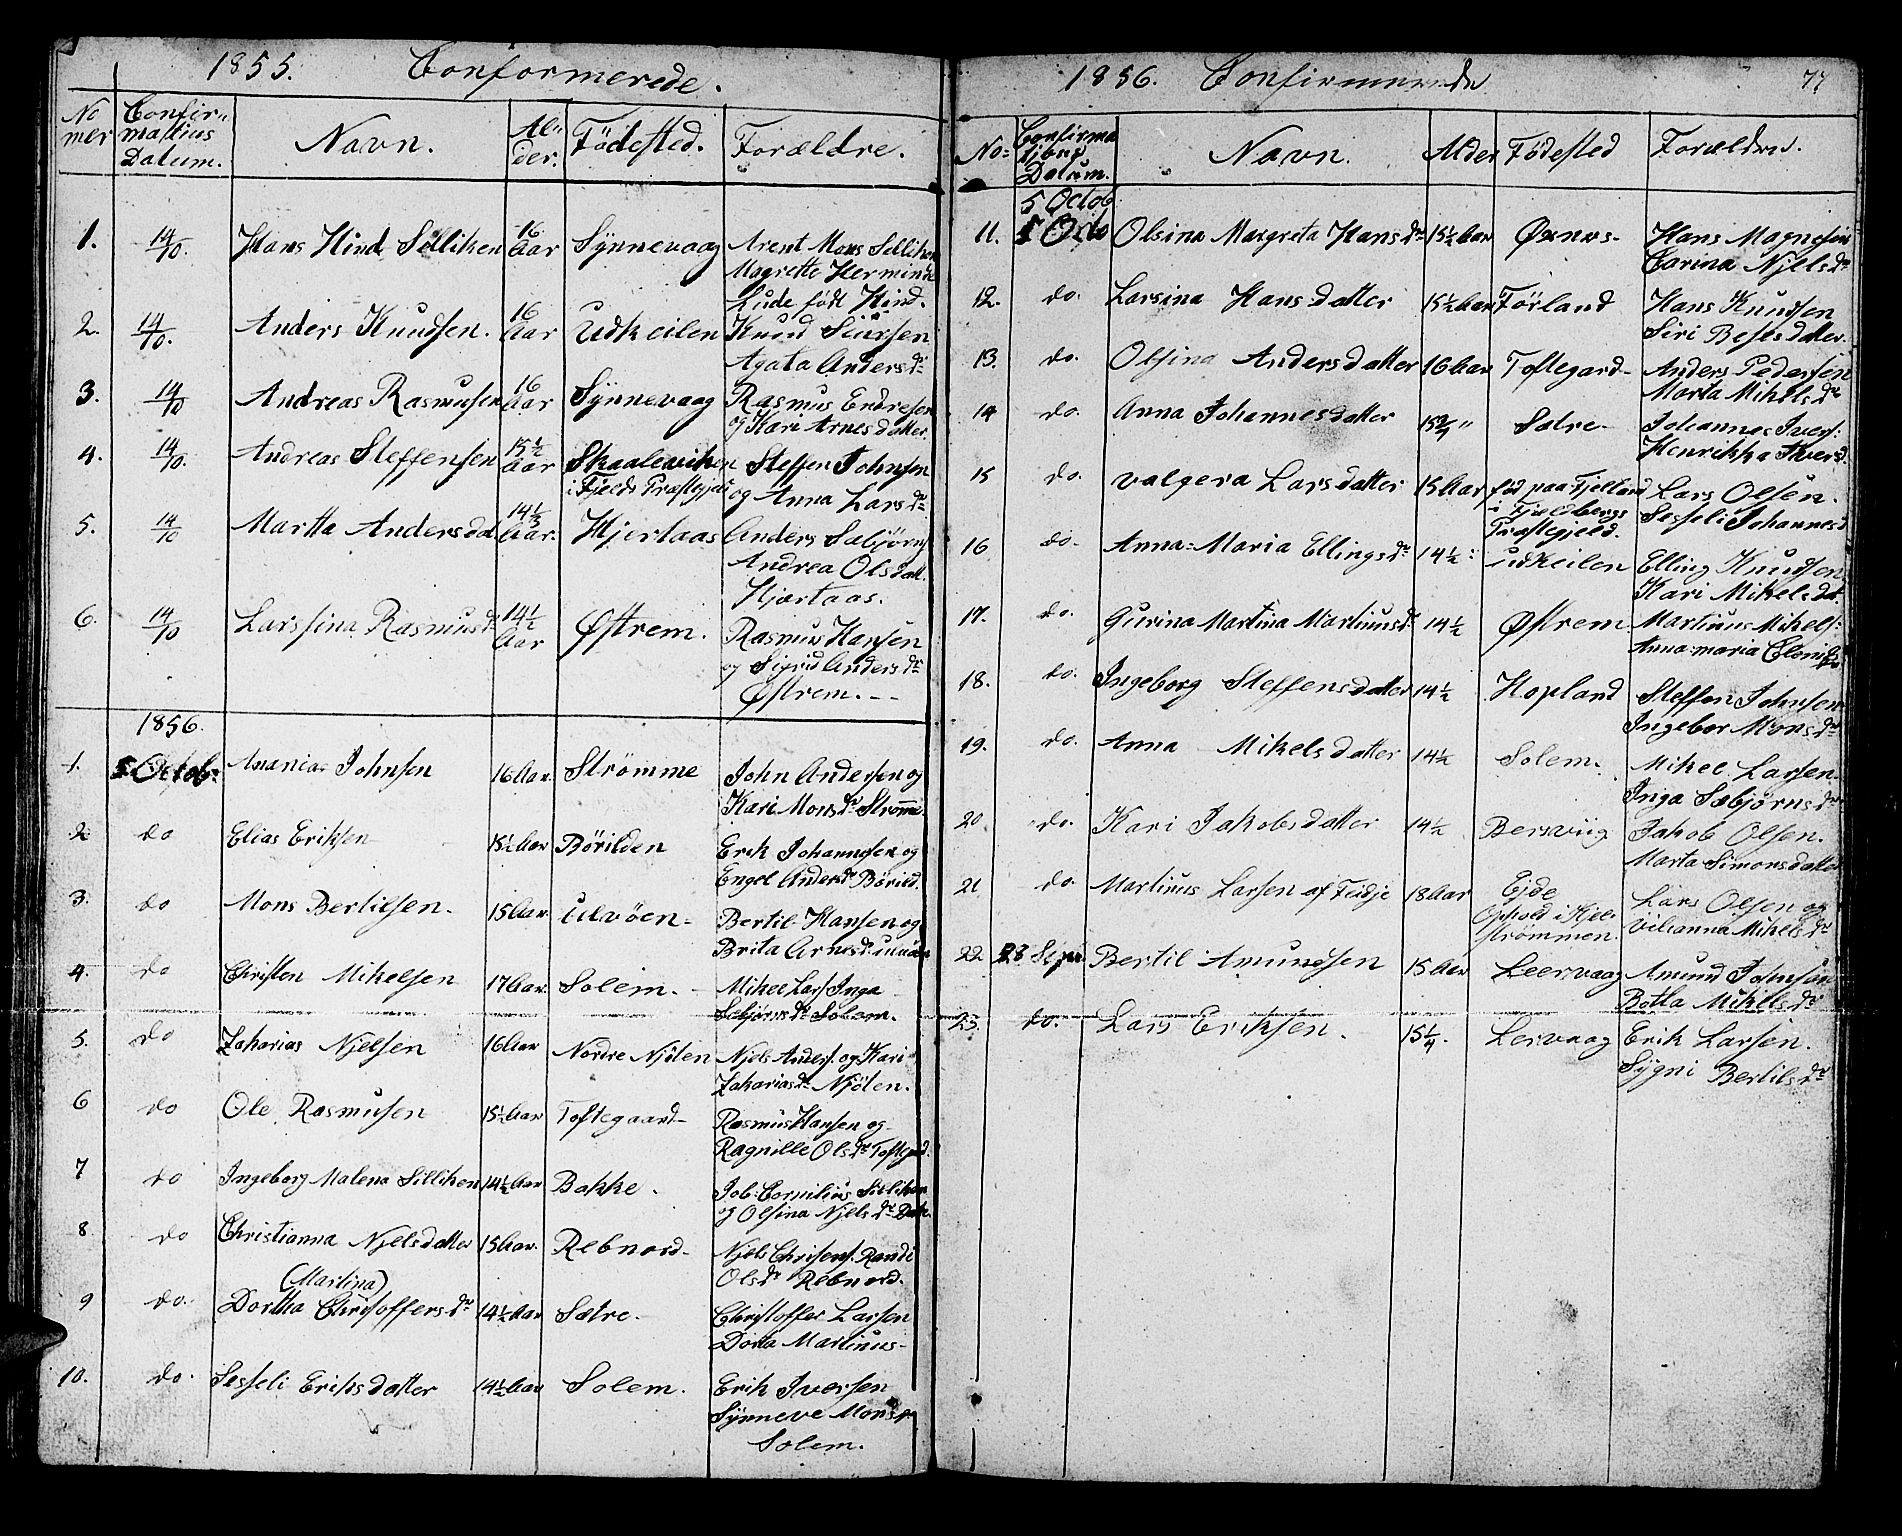 1855. Conformerede.
No mer Confirmastius Datum. Navn. Alder. Födested. Forældre.
1. 14/10. Hans Hind Selliken 16 Aar Synnevaag Arent Mons Selliken
Magrette Herminde
Lude født Hind.
2. 14/10. Anders Knudsen. 16 Aar Udkeilen Knud Siursen
Agata Andersdr
3. 14/10 Andreas Rasmusen 16 Aar Synnevaag Rasmus Endresen
og Kari Arnesdatter.
4. 14/10. Andreas Steffensen 15 1/2 Aar Skaaleviken Steffen Johnsen
i Fjelds Præstegjæl og Anna Larsdr
5. 14/10 Martta Andersdat 14 1/2 Aar. Hjertaas Anders Sæbjørns
Andrea Olsdatt.
Hjærtaas.
6. 14/10 Larssina Rasmusdr 14 1/2 Aar Østrem. Rasmus Hansen
og Sigrid Andersdr
Østrem.--
1856.
1. 5 Octob: Ananias Johnsen 16 Aar Strømme John Andersen og
Kari Monsdr Strømme.
2 do Elias Eriksen 15 1/2 Aar Börilden Erik Johannesen og
Engel Andersdr Börild.
3. do Mons Bertilsen. 15 Aar Ulvöen- Bertil Hansen og
Brita Arnesdr
4. do Christen Mikelsen 17 Aar. Solem.- Mikel Lars Inga
Sebjörnsdr Solem.
5. do Zakarias Njelsen 16 Aar Nordre Njöten Njels Anders. og Kari
Zakariasdr Njöten.
6 do Ole Rasmusen 15 1/2 Aar Toftegaard- Rasmus Hansen og
Ragnille Olsdr Toftegrd.
7 do Ingeborg Malena Silliken 14 1/2 Aar Bakke. Job: Cornilius Silliken
og Olsina Njelsdr Bak.
8 do Christianna Njelsdatter 15 Aar. Rebnord- Njels Chrisens. Randi
Olsdr Rebnord.
(Martina)
9 do. Dortta Christoffersdr 14 1/2 Aar Sætre. Christoffer Larsen
Dorta Martinus-
10. do. Sesseli Eriksdatter 14 1/2 Aar Solem. Erik Iversen
Synneve Monsdr
Solem.
1856. Confirmerede 77
No= Confirmationx Datum. Navn. Alder Födested Forældre.
5 Octob
11. 5 Octo Olsina Margreta Hansdr 15 1/2 Aar Øxnes- Hans Magnesen
Carina Njelsdr
12. do. Larsina Hansdatter 15 1/2 Aar Förland Hans Knudsen
Siri Besesdatter.
13. do. Olsina Andersdatter 16 Aar Toftegard- Anders Pedersen
Marta Mikelsdr
14 do. Anna Johannesdatter 15 3/4 " Sætre- Johannes Ivers:
Henrikka Iversd.
15 do. Valgera Larsdatter 15 Aar föd paa Fjelland Lars Olsen.
i Fjeldbergs Sesseli Johannesd
Præstegjeld.
16 do. Anna=Maria Ellingsdr 14 1/2: Udkeilen Elling Knudsen
Kari Mikelsdt.
17. do. Gurina Martina Martinusdr 14 1/2 Østrem. Martinus Mikels:
Anna-maria
18. do. Ingeborg Steffensdatter 14 1/2 Hopland Steffen Johnsen
Ingebor Monsdr
19. do. Anna Mikelsdatter 14 1/2 Solem. Mikel Larsen.
Inga Sæbjørnsdr
20 do. Kari Jakobsdatter 14 1/2 Bersviig Jakob Olsen.
Marta Simonsdatter
21 do. Martinus Larsen af Fedje 18 Aar Eide Lars Olsen og
Ophold i Kjel- Vilianna Mikelsdr
strömmen.
22. 28 Sept. Bertil Amundsen 15 Aar Leervaag Amund Johnsen
Botla Mikelsdr
23. do. Lars Eriksen. 15 1/4. Lervaag Erik Larsen.
Sygni Bertilsdr